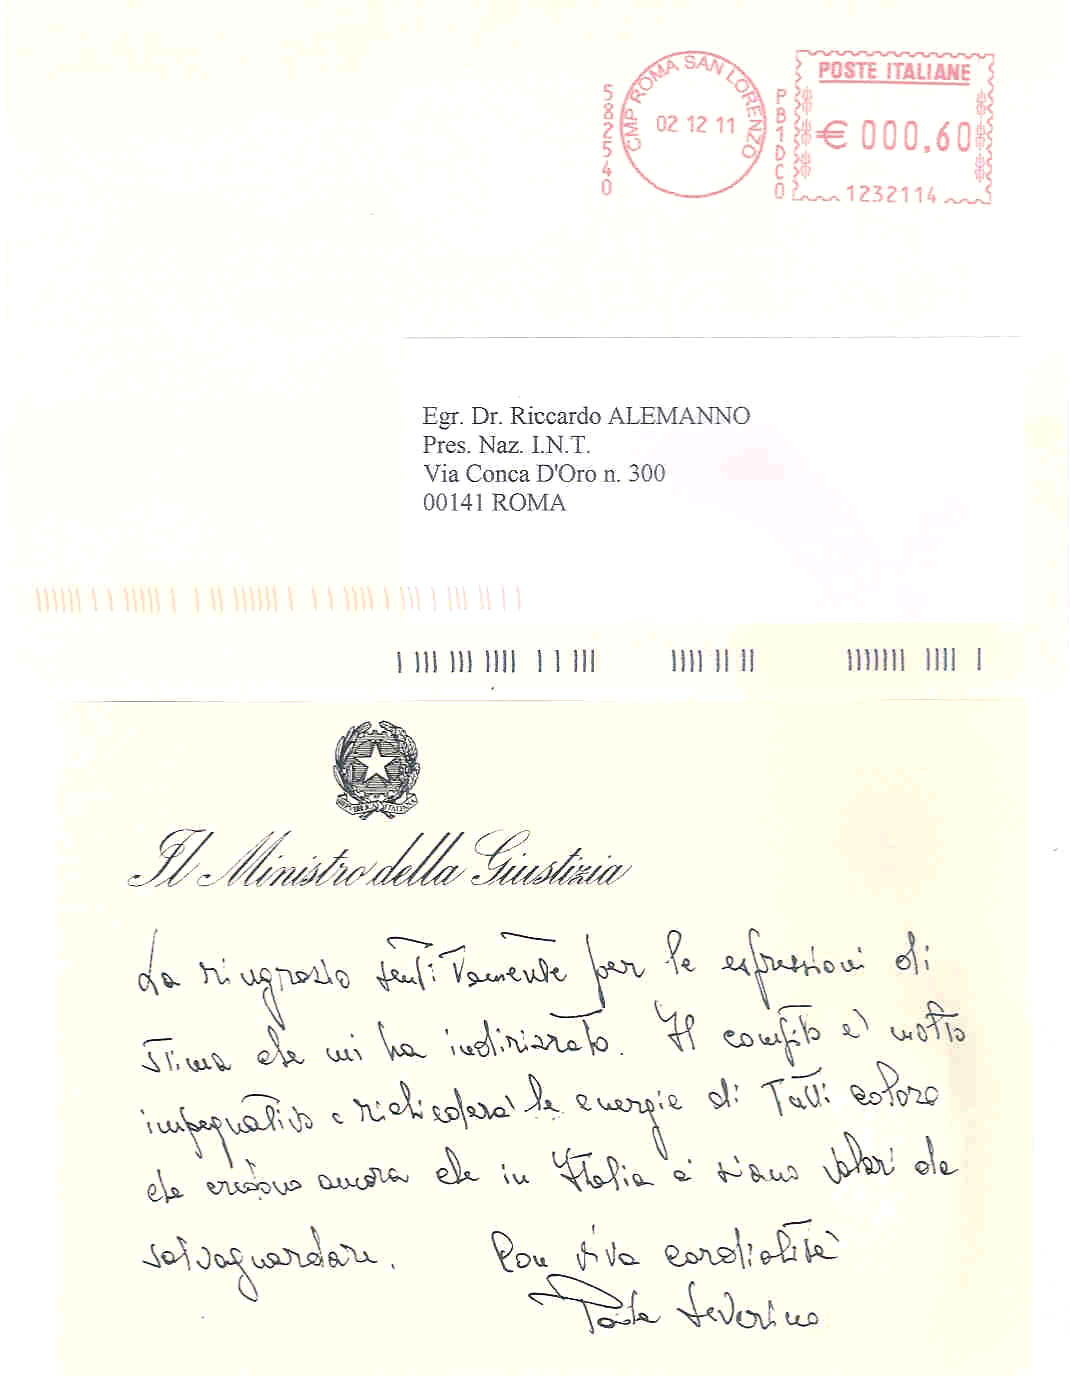 POSTE ITALIANE
CMP ROMA SAN LORENZO
02 12 11
582540
PB1DC0
€ 000,60
1232114
Egr. Dr. Riccardo ALEMANNO
Pres. Naz. I.N.T.
Via Conca D'Oro n. 300
00141 ROMA
REPVBBLICA ITALIANA
Il Ministro della Giustizia
La ringrazio sentitamente per le espressioni di
stima che mi ha indirizzato. Il compito e' molto
impegnativo e richiedera' le energie di tutti coloro
che credono ancora che in Italia ci siano valori da
salvaguardare. Con viva cordialità
Paola Severino